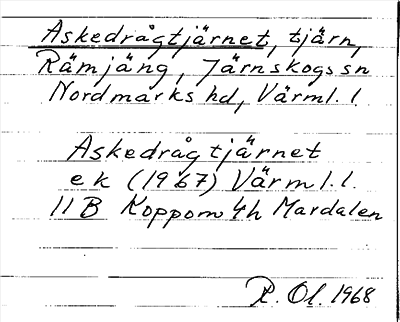 Askedrågtjärnet, tjärn,
Rämjäng, Järnskogs sn
Nordmarks hd, Värml. l.
Askedrågtjärnet
ek (1967) Värml. l.
11B Koppom 4h Mardalen
R. Ol. 1968